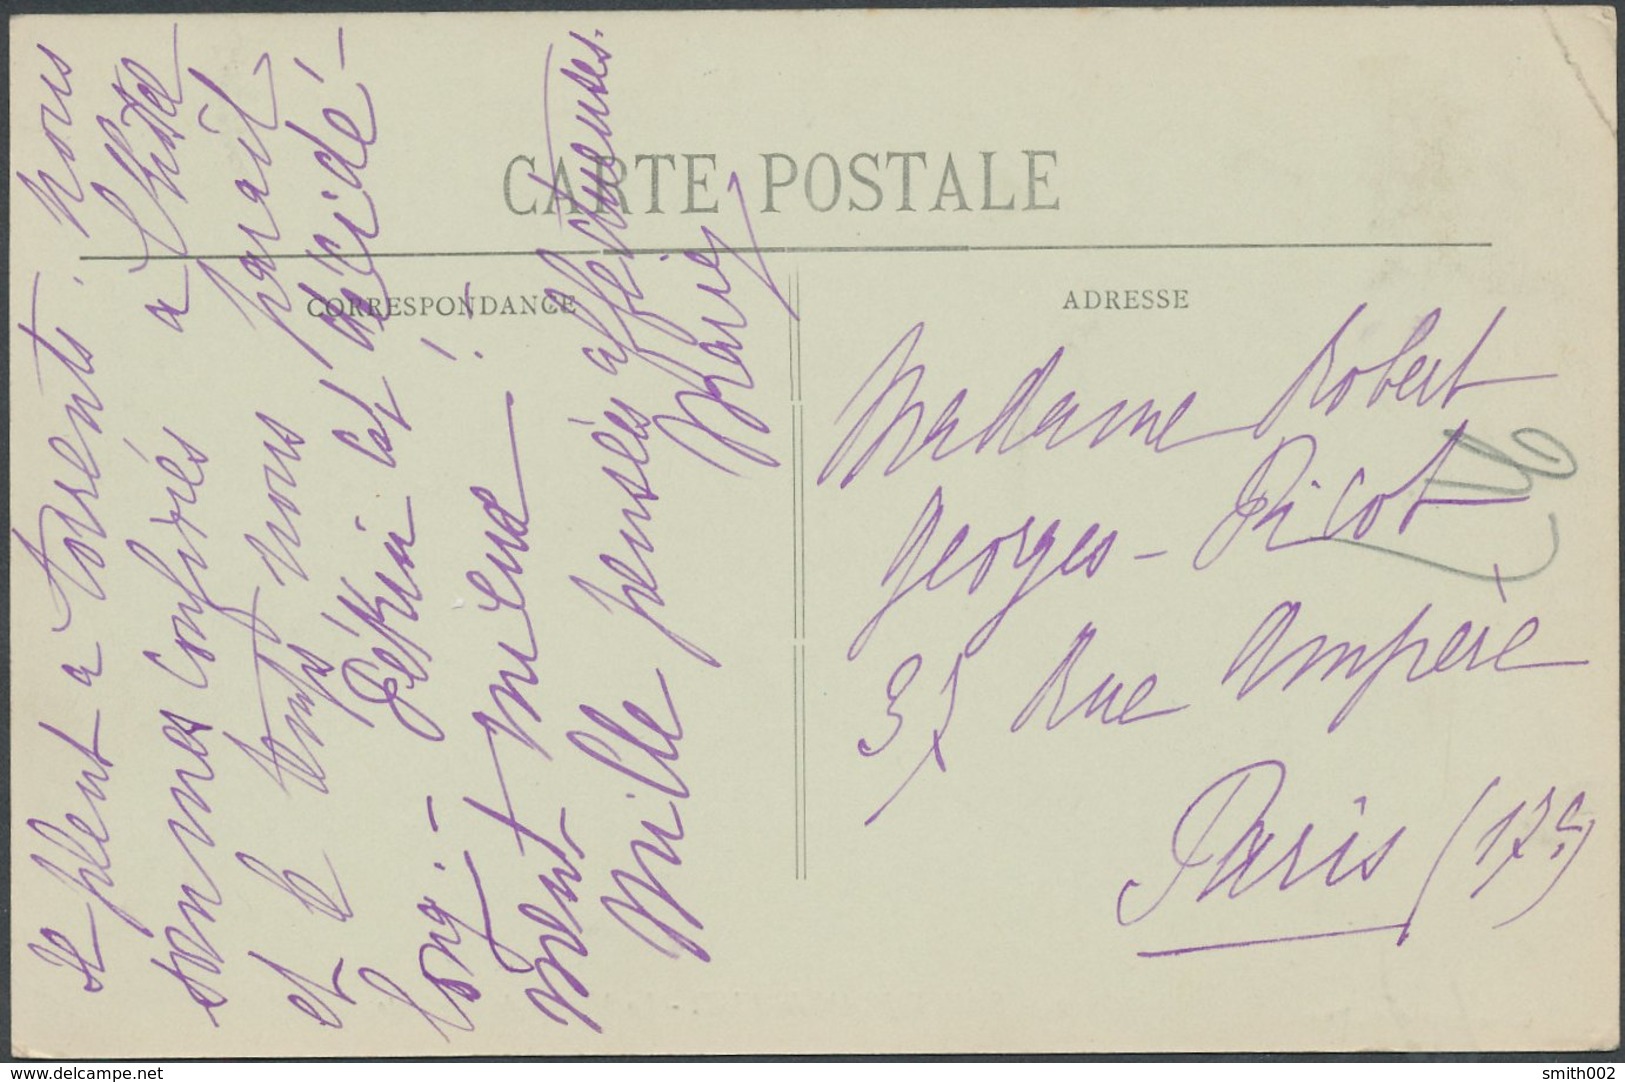 CARTE POSTALE
CORRESPONDANCE
ADRESSE
Il pleut à torrents. Nous
sommes confinés à l'hôtel
et le temps nous paraît
long.- Pékin est décidé-
ment mieux!
Mille pensées affectueuses.
Marie
Madame Robert
Georges-Picot
37 Rue Ampère
Paris (17e)
www.delcampe.net
smith002